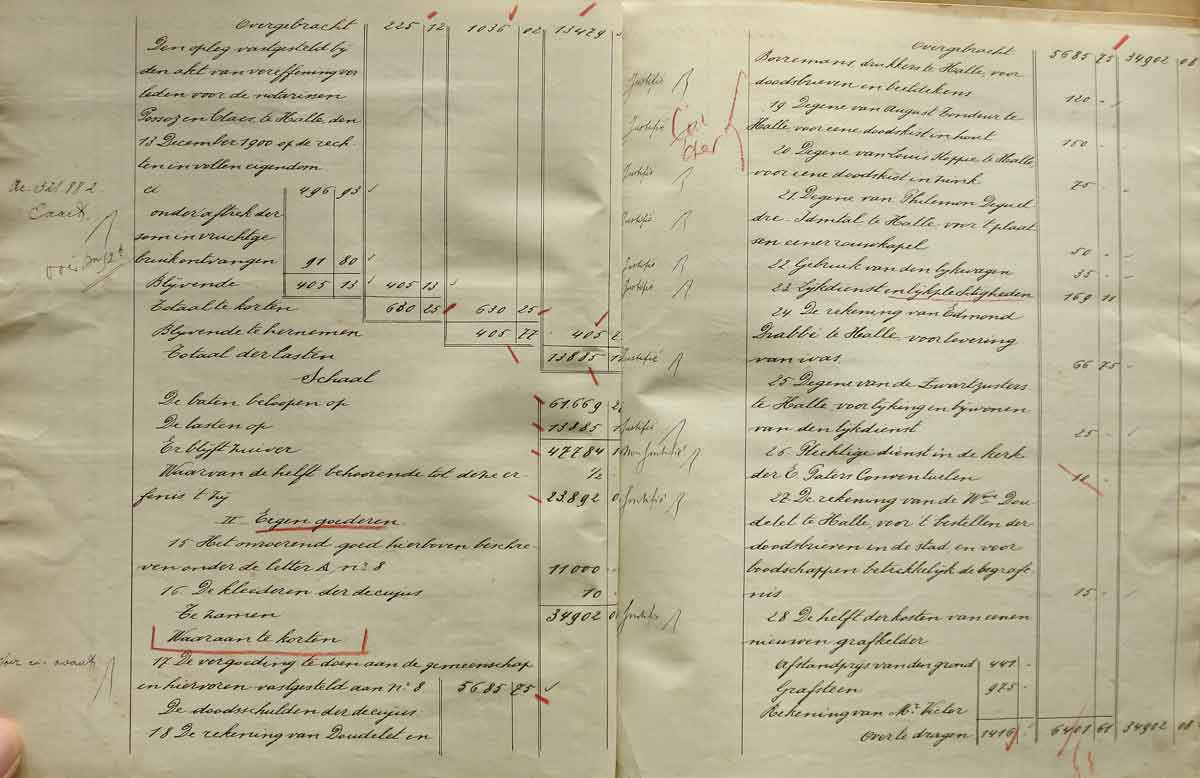 Overgebracht 225 12 1036 02 13479
Den opleg vastgesteld bij
den akt van vereffening ver
leden voor de notarissen
Possoz en Claes, te Halle, den
13 December 1900 op de rech
ten in vollen eigendom
ci 496 93
onder aftrek der
som in vruchtge
bruik ontvangen 91 80
Blijvende 405 13 405 13
Totaal te korten 630 25 630 25
Blijvende te hernemen 405 77 405
Totaal der lasten 13885
Schaal
De baten beloopen op 61.669
De lasten op 13885
Er blijft zuiver 47784
Waarvan de helft behoorende tot deze er 1/2
fenis 't zij 23.892
II Eigen goederen
15 Het onroerend goed hierboven beschre-
ven onder de letter A, n° 8 11000
16. De kleederen der decujus 10
Te zamen 34902
Waaraan te korten
17. De vergoeding te doen aan de gemeenschap
en hiervoren vastgesteld aan n° 8 5685 75
De doodsschulden der decujus
18 De rekening van Doudelet en
Overgebracht 5685 75 34902 08
Borremans, drukkers te Halle, voor
doodsbrieven en beeldekens 120 -
19 Degene van August Fondeur te
Halle, voor eene doodskist in hout 150 -
20 Degene van Louis Hoppie te Halle
voor eene doodskist in zink 75 -
21. Degene van Philemon Dequel
dre-Idmtal te Halle voor 't plaat
sen eener rouwkapel 50 -
22 Gebruik van den lijkwagen 35 -
23. Lijkdienst en lijkplechtigheden 169 11
24. De rekening van Edmond
Brabbé te Halle, voor levering
van was 66 75
25 Degene van de Zwartzusters
te Halle, voor lijking en bijwonen
van den lijkdienst 25 -
26 Plechtige dienst in de kerk
der E. Paters Conventuelen 10 -
27 De rekening van de Wwe Dou
delet te Halle, voor 't bestellen der
doodsbrieven in de stad, en voor
boodschappen betrekkelijk de begraf
nis 15 -
28 De helft der kosten van eenen
nieuwen grafkelder
Afstandprijs van den grond 441 -
Grafsteen 975 -
Rekening van Mr Victor
Over te dragen 1416 6401 61 34902 08
Justifié
Justifié
Justifié
Justifié
Justifié
Justifié
Justifié
Justifié
Non Justifié
Justifié
Justifié